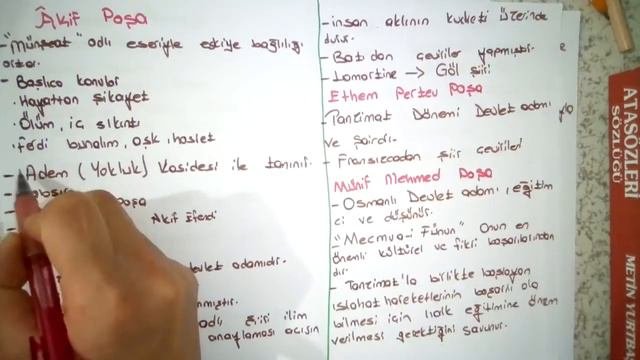 Âkif Paşa
- "Münşeat" adlı eseriyle eskiye bağlılığı
artar.
- Başlıca konular
• Hayattan şikayet
• Ölüm, iç sıkıntı
• Ferdi bunalım, aşk, hasret
- Adem (Yokluk) Kasidesi ile tanınır.
paşa
Akif Efendi
devlet adamıdır.
nmıştır.
adlı şiiri ilim
anaylaması açısın
- insan aklının kudreti üzerinde
durur.
- Batıdan çeviriler yapmıştır.
- Lamartine → Göl şiiri
Ethem Pertev Paşa
- Tanzimat Dönemi Devlet adamı
ve Şairdir.
- Fransızcadan şiir çevirileri
Münif Mehmed Paşa
- Osmanlı Devlet adamı, eğitim
ci ve düşünür.
- "Mecmua-i Fünun" Onun en
önemli kültürel ve fikri başarılarından
dır.
- Tanzimat'la birlikte başlayan
ıslahat hareketlerinin başarılı ola
bilmesi için halk eğitimine önem
verilmesi gerektiğini savunur.
ATASÖZLERİ
SÖZLÜĞÜ
METİN YURTBA